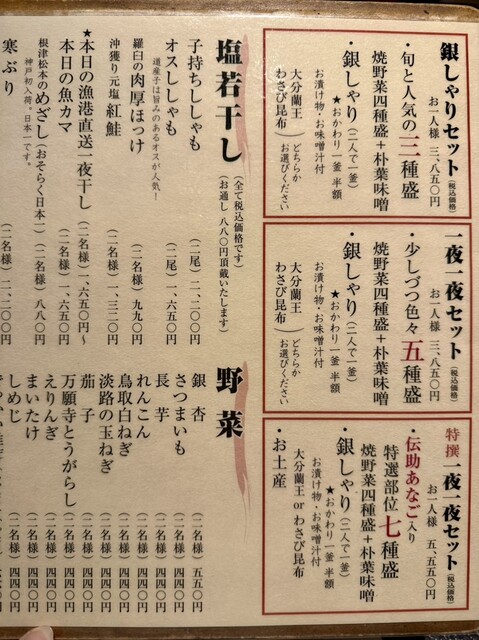 銀しゃりセット(税込価格)
お一人様 三、八五〇円
・旬と人気の三種盛
焼野菜四種盛+朴葉味噌
・銀しゃり(二人で一釜)
★おかわり一釜半額
お漬け物・お味噌汁付
大分蘭王
わさび昆布
どちらか
お選びください
一夜一夜セット(税込価格)
お一人様 三、八五〇円
・少しづつ色々五種盛
焼野菜四種盛+朴葉味噌
・銀しゃり(二人で一釜)
★おかわり一釜半額
お漬け物・お味噌汁付
大分蘭王
わさび昆布
どちらか
お選びください
特撰 一夜一夜セット(税込価格)
お一人様 五、五〇〇円
・伝助あなご入り
特選部位七種盛
焼野菜四種盛+朴葉味噌
・銀しゃり(二人で一釜)
★おかわり一釜半額
お漬け物・お味噌汁付
大分蘭王orわさび昆布
・お土産
塩若干し
(全て税込価格です)
(お通し八八〇円頂戴いたします)
子持ちししゃも (二尾)二、二〇〇円
オスししゃも (二尾)一、六五〇円
道産子は旨みのあるオスが人気!
羅臼の肉厚ほっけ (二名様)九九〇円
沖獲り元塩 紅鮭 (二名様)一、三二〇円
★本日の漁港直送一夜干し (二名様)一、六五〇円~
本日の魚カマ (二名様)一、六五〇円
根津松本のめざし(おそらく日本一) (二名様)八八〇円
神戸初入荷。日本一です。
寒ぶり (二名様)二、二〇〇円
野菜
銀杏 (二名様)五五〇円
さつまいも (二名様)四四〇円
長芋 (二名様)四四〇円
れんこん (二名様)四四〇円
鳥取白ねぎ (二名様)四四〇円
淡路の玉ねぎ (二名様)四四〇円
茄子 (二名様)四四〇円
万願寺とうがらし (二名様)四四〇円
えりんぎ (二名様)四四〇円
まいたけ (二名様)四四〇円
しめじ (二名様)四四〇円